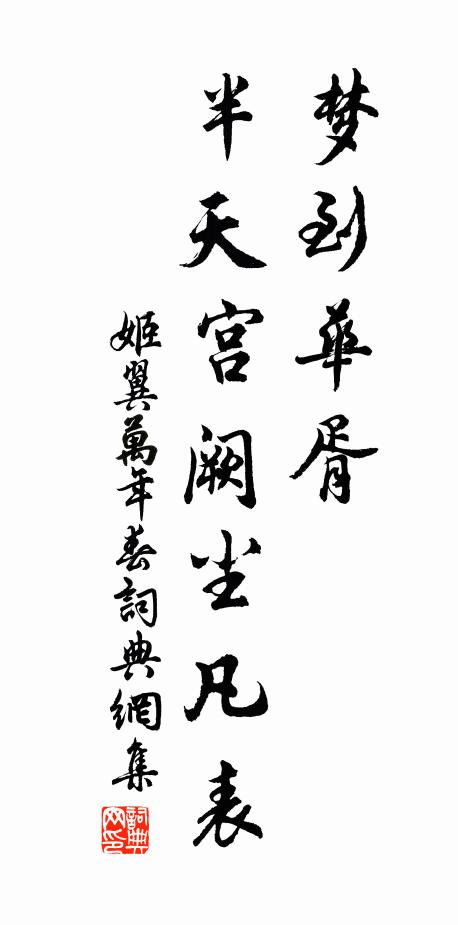 梦到華胥
半天宫阙尘凡表
姬翼萬年春詞典網集
詞典
网印